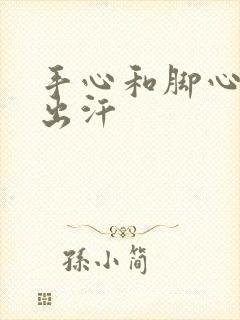 手心和脚心
出汗
孫小简